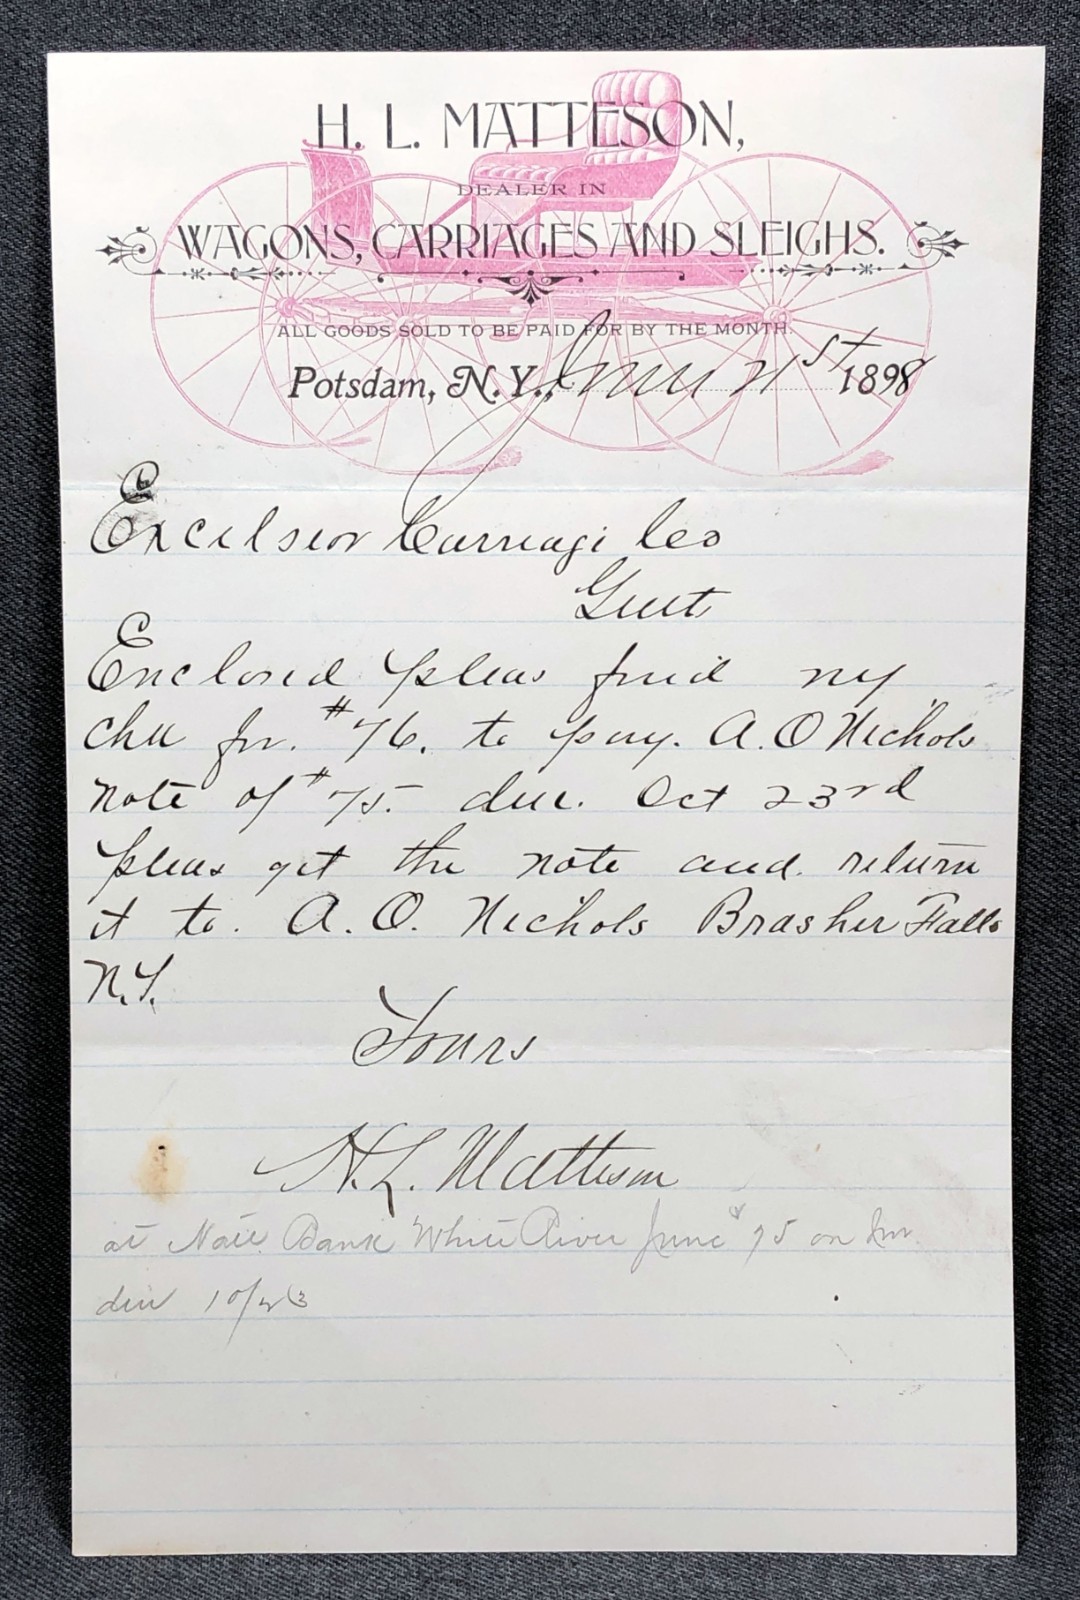 H. L. MATTESON,
DEALER IN
WAGONS, CARRIAGES AND SLEIGHS.
ALL GOODS SOLD TO BE PAID FOR BY THE MONTH.
Potsdam, N.Y., 21st 1898
Excelsior Carriage Co
Gent
Enclosed pleas find my
for. #76. to pay. A. O Nichols
note of #75. due. Oct 23rd
pleas get the note and return
it to. A. O. Nichols Brasher Falls
N.Y.
Yours
H. L. Matteson
at Natl. Bank White River June 75 on
due 10/23